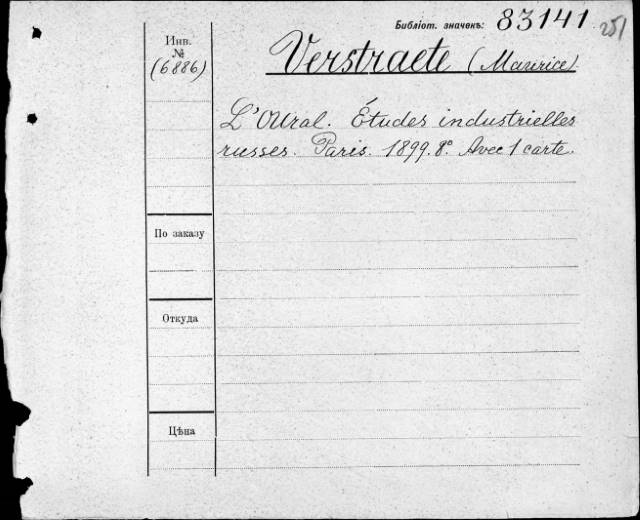 Библіот. значекъ: 83141 251
Инв.
№
(6886)
Verstraete (Maurice)
L'Oural. Études industrielles
russes. Paris. 1899. 8°. Avec 1 carte.
По заказу
Откуда
Цѣна